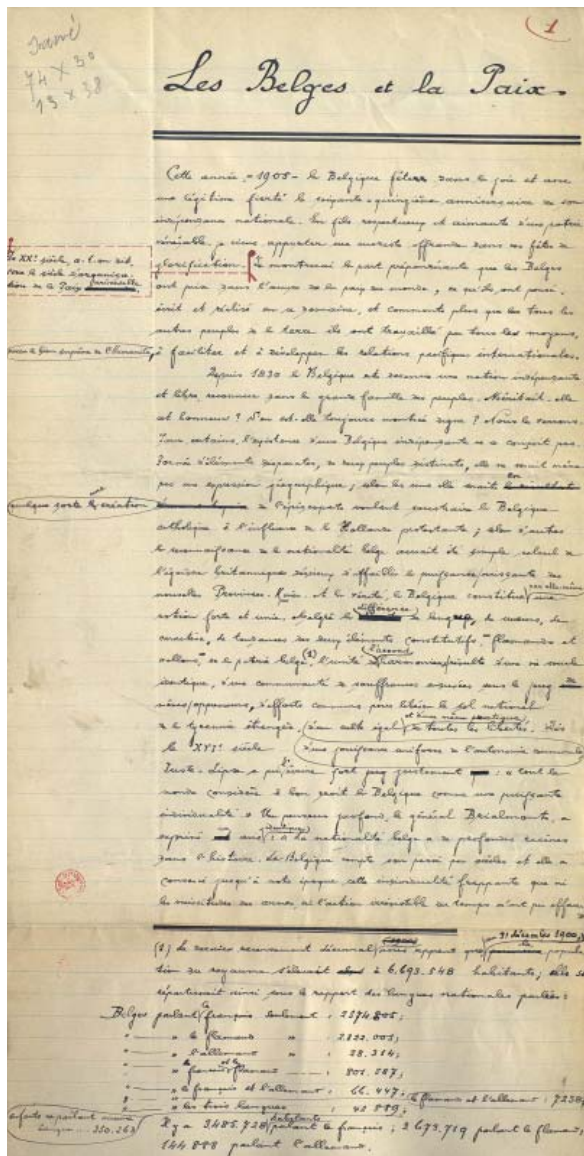 Farné
74 X 30
13 X 38
1
Les Belges et la Paix
Cette année - 1905 - la Belgique fêtera dans la joie et avec
une légitime fierté le soixante-quinzième anniversaire de son
indépendance nationale. En fils respectueux et aimants d'une patrie
vénérable, je viens apporter une modeste offrande dans ces fêtes de
glorification. Je montrerai la part prépondérante que les Belges
Le XXe siècle, a-t-on dit,
sera le siècle d'organisa-
tion de la Paix
ont prise dans l'œuvre de la paix du monde, ce qu'ils ont pensé,
écrit et réalisé en ce domaine, et comment plus que tous les
autres peuples de la terre ils ont travaillé par tous les moyens,
pour le bien suprême de l'Humanité,
à faciliter et à développer les relations pacifiques internationales.
Depuis 1830 la Belgique est devenue une nation indépendante
et libre, reconnue dans la grande famille des peuples. Méritait-elle
cet honneur ? S'en est-elle toujours montrée digne ? Nous le verrons.
Pour certains, l'existence d'une Belgique indépendante ne se conçoit pas.
Formée d'éléments disparates, de deux peuples distincts, elle ne serait même
pas une expression géographique ; selon les uns elle serait en
quelque sorte une création
de l'épiscopat voulant soustraire la Belgique
catholique à l'influence de la Hollande protestante ; selon d'autres
la reconnaissance de la nationalité belge aurait été simple calcul de
l'égoïsme britannique désireux d'affaiblir la puissance naissante des
nouvelles Provinces-Unies. A la vérité, la Belgique constitue par elle-même une
nation forte et unie. Malgré la différence de langue, de mœurs, de
caractère, de tendances des deux éléments constitutifs, flamands et
wallons, de la patrie belge (1), l'unité l'accord harmonieux résulte d'une vie sociale
identique, d'une communauté de souffrances endurées sous le joug de
mêmes oppresseurs, d'efforts communs pour libérer le sol national
de la tyrannie étrangère, d'un culte égal et d'une même pratique de toutes les libertés. Dès
le XVIe siècle
d'une jouissance uniforme de l'autonomie communale
Juste-Lipse a pu écrire fort justement : « tout le
monde considère à bon droit la Belgique comme une puissante
individualité » Un penseur profond, le général Brialmont, a
exprimé : « La nationalité belge a de profondes racines
dans l'histoire. La Belgique compte son passé par siècles et elle a
conservé jusqu'à notre époque cette individualité frappante que ni
les vicissitudes des armes, ni l'action irrésistible du temps n'ont pu effacer
(1) Le dernier recensement décennal nous apprend que 31 décembre 1900, la popula-
tion du royaume s'élevait à 6.693.548 habitants ; elle se
répartissait ainsi sous le rapport des langues nationales parlées :
Belges parlant le français seulement : 2574805 ;
" le flamand " : 2.822.005 ;
" l'allemand " : 28.314 ;
" le français et le flamand : 801.587 ;
" le français et l'allemand : 66.447 ; le flamand et l'allemand : 7238 ;
" les trois langues : 42.889 ;
enfants ne parlant aucune
langue ... 350.263
Il y a 3485.728 habitants parlant le français ; 3 673.719 parlant le flamand ;
144.888 parlant l'allemand.